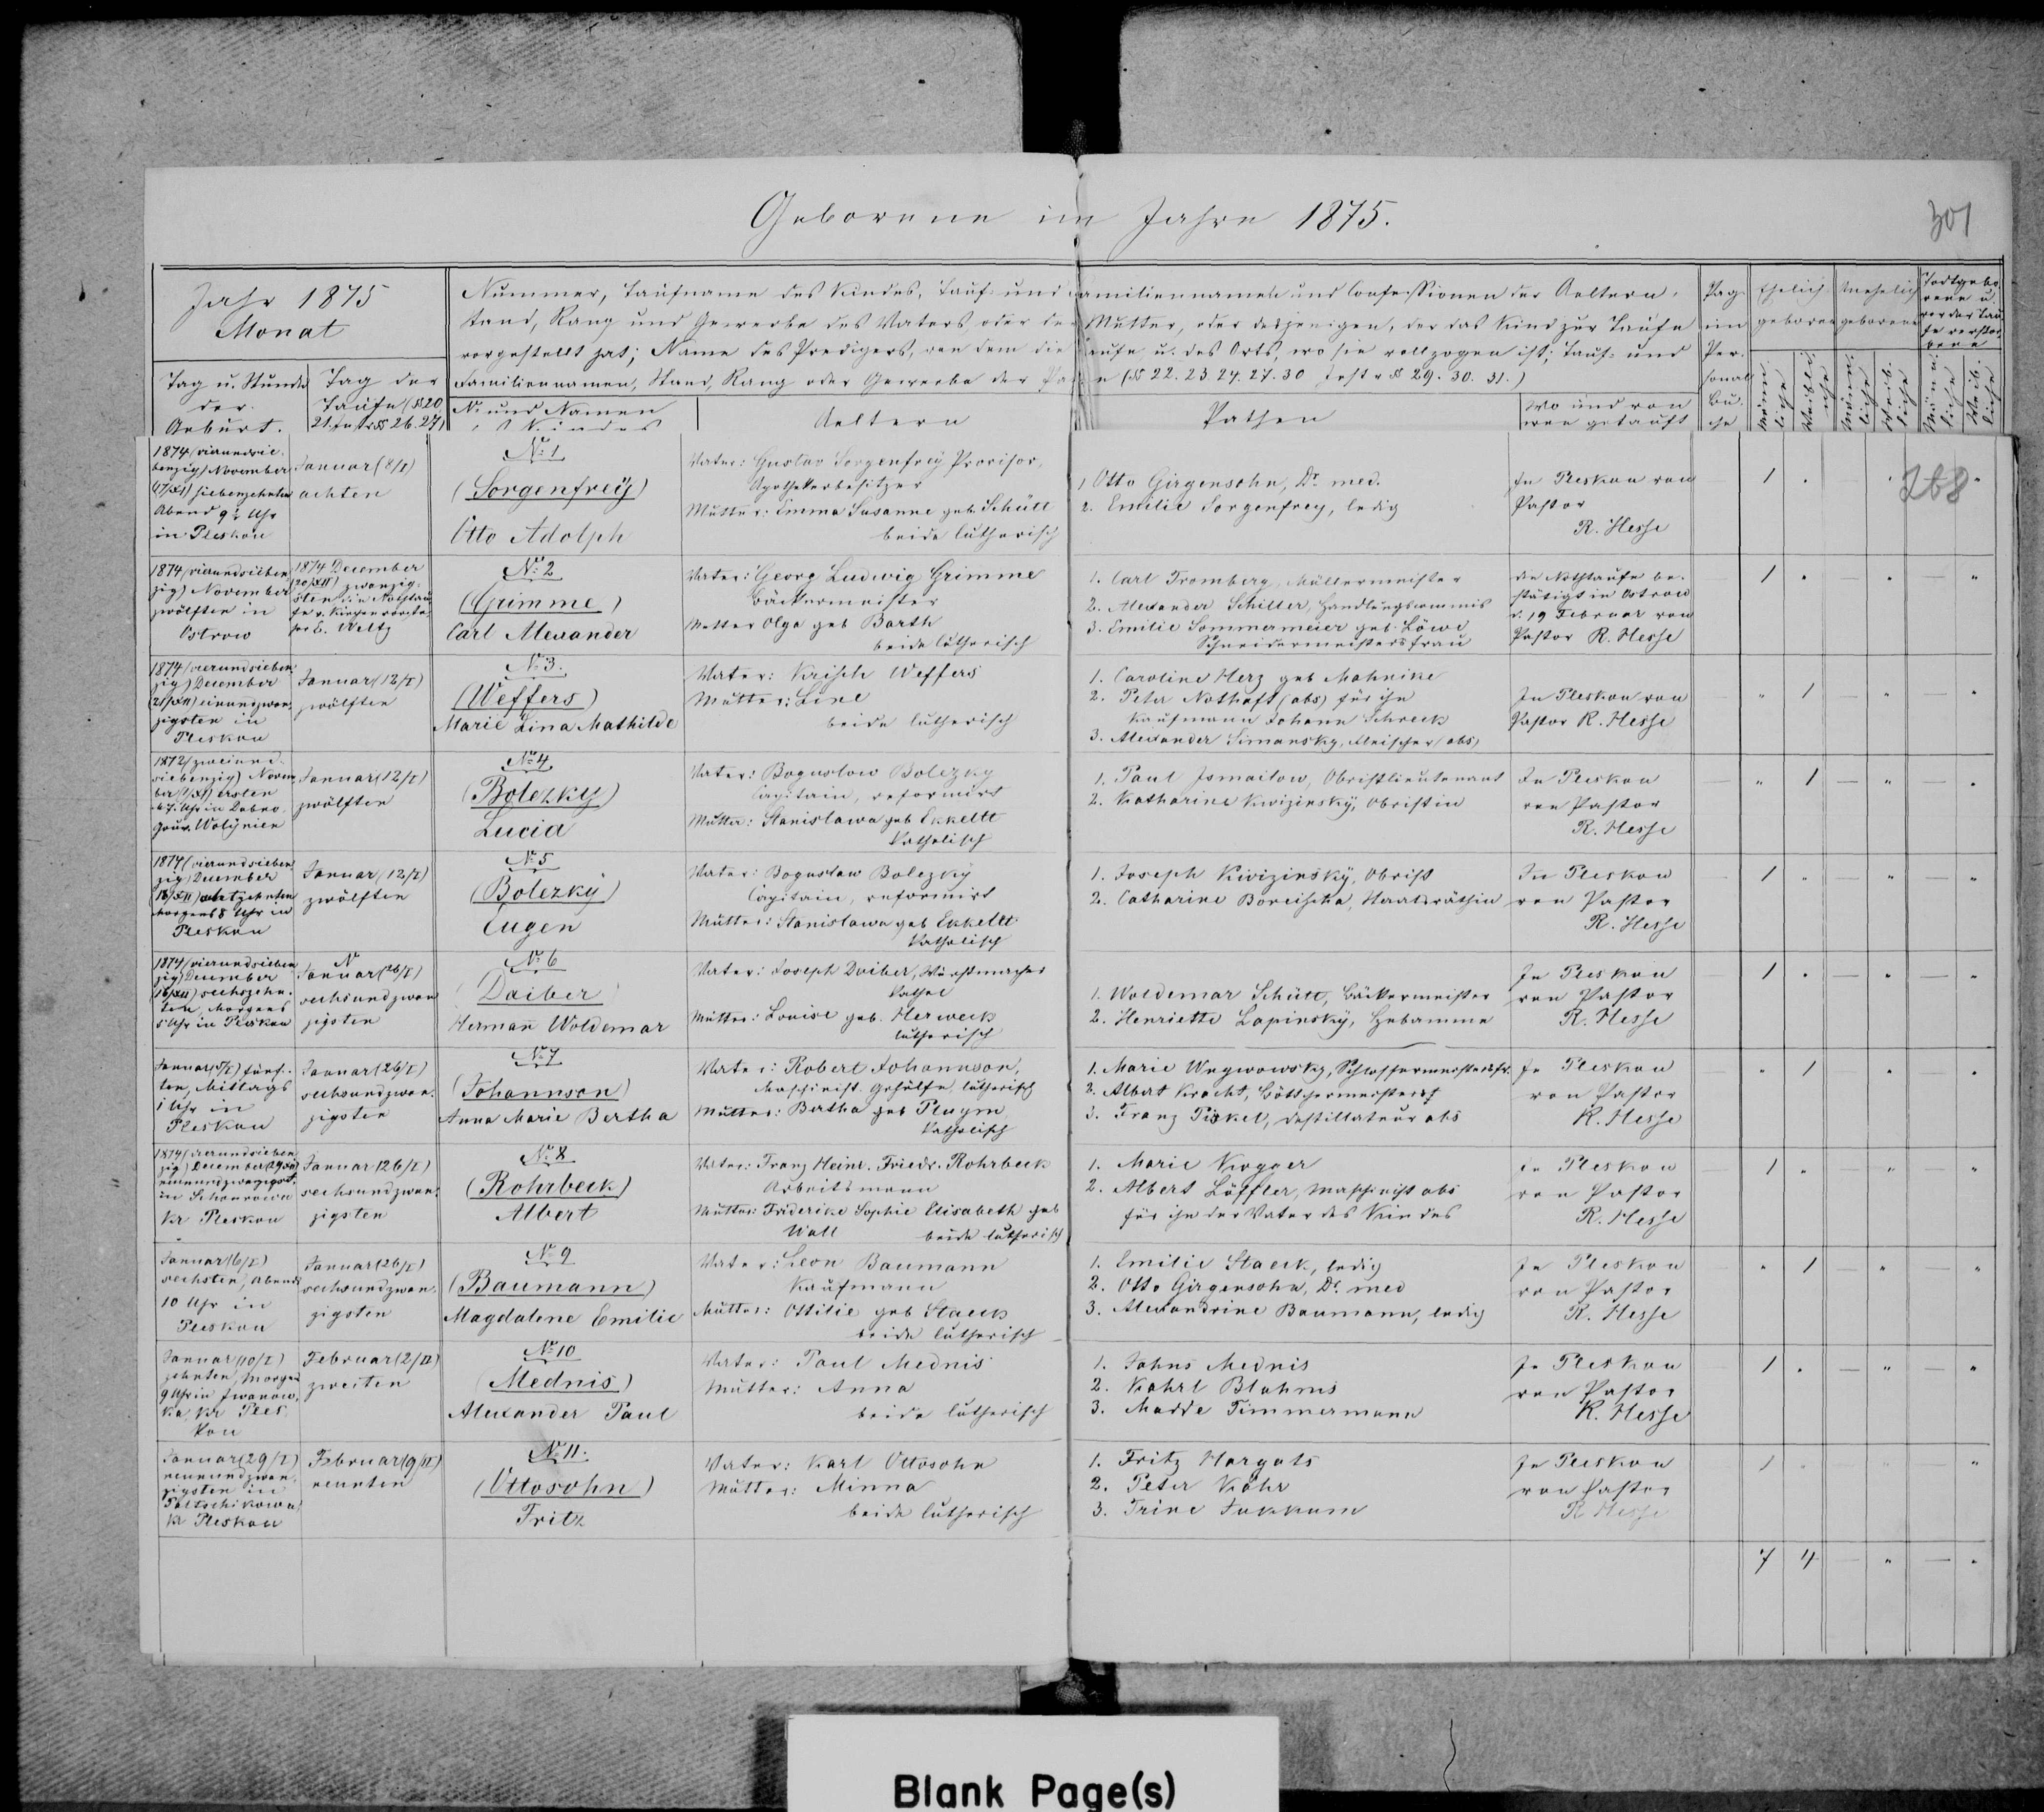 Geborene im Jahre 1875.
301
Jahr 1875
Monat
Tag u. Stunde
der
Geburt.
Tag der
Taufe (§§ 20
21. Instr. §§ 26. 27)
Nummer, Taufname des Kindes, Tauf- und Familiennamen und Confessionen der Aeltern,
Stand, Rang und Gewerbe des Vaters oder der Mutter, oder desjenigen, der das Kind zur Taufe
vorgestellt hat; Name des Predigers, von dem die Taufe u. des Orts, wo sie vollzogen ist; Tauf- und
Familiennamen, Stand, Rang oder Gewerbe der Pathen (§§ 22. 23. 24. 27. 30 Instr §§ 29. 30. 31.)
No. und Namen
des Kindes
Aeltern
Pathen
Wo und von
wem getauft
Pag.
im
Per-
sonal
Bu-
che
Ehelich
geboren
Unehelich
geborene
Todtgebo-
rene u.
vor der Tau-
fe verstor-
bene
Männ-
liche
Weibli-
che
Männ-
liche
Weib-
liche
Männ-
liche
Weib-
liche
1874 (vierundsie-
benzig) November
(17/XI) siebenzehnten
Abend 9½ Uhr
in Pleskau
Januar (8/I)
achten
No. 1
(Sorgenfrey)
Otto Adolph
Vater: Gustav Sorgenfrey Provisor,
Apothekerbesitzer
Mutter: Emma Susanne geb. Schütt
beide lutherisch
1 Otto Girgensohn, Dr. med.
2. Emilie Sorgenfrey, ledig
In Pleskau von
Pastor
R. Hesse
1 . 268
1874 (vierundsieben-
zig) November
zwölften in
Ostrow
1874 December
(20/XII) zwanzig-
sten die Nothtau-
fe v. Kirchenvorste-
her C. Weltz
No. 2
(Grimme)
Carl Alexander
Vater: Georg Ludwig Grimme
Bäckermeister
Mutter Olga geb Barth
beide lutherisch
1. Carl Tromberg, Müllermeister
2. Alexander Schiller, Handlungscommis
3. Emilie Sommermeier geb. Löwe
Schneidermeistersfrau
die Nothtaufe be-
stätigt in Ostrow
d. 19 Februar von
Pastor R. Hesse
1 . — " — "
1874 (vierundsieben-
zig) December
(21/XII) einundzwan-
zigsten in
Pleskau
Januar (12/I)
zwölften
No. 3.
(Weffers)
Marie Lina Mathilde
Vater: Krisch Weffers
Mutter: Line
beide lutherisch
1. Caroline Herz geb Mahnike
2. Peter Nothaft (abs) für ihn
Kaufmann Johann Schreck
3. Alexander Simansky, Fleischer (abs)
In Pleskau von
Pastor R. Hesse
" 1 — " — "
1872 (zweiund-
siebenzig) Novem-
ber (1/XI) ersten
Uhr in Dubno
Gouv. Wolynien
Januar (12/I)
zwölften
No. 4
(Bolezky)
Lucia
Vater: Boguslow Bolezky
Capitain, reformirt
Mutter: Stanislawa geb Ekkeltt
Katholisch
1. Paul Ismailow, Obristlieutenant
2. Katharine Kwizinsky, Obristin
In Pleskau
von Pastor
R. Hesse
" 1 — " — "
1874 (vierundsieben-
zig) December
(18/XII) achtzehnten
Morgens 8 Uhr in
Pleskau
Januar (12/I)
zwölften
No. 5
(Bolezky)
Eugen
Vater: Boguslaw Bolezky
Capitain, reformirt
Mutter: Stanislawa geb Ekkeltt
Katholisch
1. Joseph Kwizinsky, Obrist
2. Catharine Boreischa, Staatsräthin
In Pleskau
von Pastor
R. Hesse
1 . — " — "
1874 (vierundsieben
zig) December
(16/XII) sechszehn-
ten, Morgens
5 Uhr in Pleskau
Januar (26/I)
sechsundzwan
zigsten
No. 6
(Daiber
Hermann Woldemar
Vater: Joseph Daiber, Wurstmacher
Kathol
Mutter: Louise geb. Herweck
lutherisch
1. Woldemar Schütt, Bäckermeister
2. Henriette Lapinsky, Hebamme
In Pleskau
von Pastor
R. Hesse
1 . — " — "
Januar (5/I) fünf-
ten, Mittags
1 Uhr in
Pleskau
Januar (26/I)
sechsundzwan-
zigsten
No. 7
(Johannson)
Anna Marie Bertha
Vater: Robert Johannson,
Maschinist. Gehülfe, lutherisch
Mutter: Bertha geb Pluym
Katholisch
1. Marie Wngwowsky, Schlossermeistersfr.
2. Albert Kracht, Böttchermeister
3. Franz Piskel, Destillateur abs
In Pleskau
von Pastor
R. Hesse
" 1 " "
1874 (vierundsieben
zig) December (29/XII)
neunundzwanzigst.
in Schourowa
Kr Pleskau
Januar (26/I)
sechsundzwan-
zigsten
No. 8
(Rohrbeck)
Albert
Vater: Franz Heinr. Friedr. Rohrbeck
Arbeitsmann
Mutter: Friderike Sophie Elisabeth geb
Wall beide lutherisch
1. Marie Krogger
2. Albert Löffler, Maschinist abs
für ihn der Vater des Kindes
In Pleskau
von Pastor
R. Hesse
1 " " "
Januar (6/I)
sechsten, Abends
10 Uhr in
Pleskau
Januar (26/I)
sechsundzwan-
zigsten
No. 9
(Baumann)
Magdalene Emilie
Vater: Leon Baumann
Kaufmann
Mutter: Ottilie geb Staeck
beide lutherisch
1. Emilie Staeck, ledig
2. Otto Girgensohn, Dr. med
3. Alexandrine Baumann, ledig
In Pleskau
von Pastor
R. Hesse
" 1 — " — "
Januar (10/I)
zehnten, Morgens
9 Uhr in Iwanow-
ka, Kr Ples-
kau
Februar (2/II)
zweiten
No. 10
(Mednis)
Alexander Paul
Vater: Paul Mednis
Mutter: Anna
beide lutherisch
1. Jahns Mednis
2. Kahrl Blahms
3. Madde Timmermann
In Pleskau
von Pastor
R. Hesse
1 . — " — "
Januar (29/I)
neunundzwan-
zigsten in
Poltschikowa
Kr Pleskau
Februar (9/II)
neunten
No. 11.
(Ottosohn)
Fritz
Vater: Karl Ottosohn
Mutter: Minna
beide lutherisch
1. Fritz Hargats
2. Peter Kähr
3. Trine Jukkum
In Pleskau
von Pastor
R Hesse
1 " " "
7 4 — " — "
Blank Page(s)